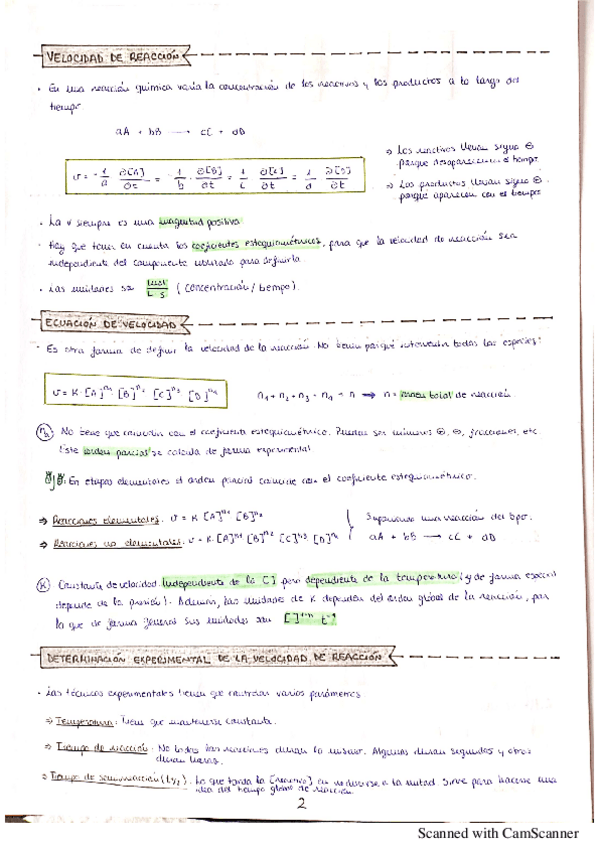 VELOCIDAD DE REACCIÓN
· En una reacción química varía la concentración de los reactivos y los productos a lo largo del
tiempo
aA + bB → cC + dD
⇒ Los reactivos llevan signo ⊖
porque desaparecen con el tiempo
v = -1/a ∂[A]/∂t = -1/b ∂[B]/∂t = 1/c ∂[C]/∂t = 1/d ∂[D]/∂t
⇒ Los productos llevan signo ⊕
porque aparecen con el tiempo
· La v siempre es una magnitud positiva
· Hay que tener en cuenta los coeficientes estequiométricos, para que la velocidad de reacción sea
independiente del componente utilizado para definirla.
· Las unidades son mol/L·s (concentración / tiempo).
ECUACIÓN DE VELOCIDAD
· Es otra forma de definir la velocidad de la reacción. No tienen porqué intervenir todas las especies:
v = K·[A]ⁿ¹·[B]ⁿ²·[C]ⁿ³·[D]ⁿ⁴
n₁ + n₂ + n₃ + n₄ = n → n = orden total de reacción
No tiene que coincidir con el coeficiente estequiométrico. Pueden ser números ⊕, ⊖, fracciones, etc.
Este orden parcial se calcula de forma experimental
En etapas elementales el orden parcial coincide con el coeficiente estequiométrico.
⇒ Reacciones elementales: v = K [A]ⁿ¹ [B]ⁿ²
Suponiendo una reacción del tipo:
⇒ Reacciones no elementales: v = K·[A]ⁿ¹ [B]ⁿ² [C]ⁿ³ [D]ⁿ⁴
aA + bB → cC + dD
K Constante de velocidad. Independiente de la [ ] pero dependiente de la temperatura (y de forma especial
depende de la presión). Además, las unidades de K dependen del orden global de la reacción, por
lo que de forma general sus unidades son [ ]¹⁻ⁿ t⁻¹
DETERMINACIÓN EXPERIMENTAL DE LA VELOCIDAD DE REACCIÓN
· Las técnicas experimentales tienen que controlar varios parámetros
⇒ Temperatura: Tiene que mantenerse constante.
⇒ Tiempo de reacción: No todas las reacciones duran lo mismo. Algunas duran segundos y otras
duran horas.
⇒ Tiempo de semirreacción (t₁/₂): Lo que tarda la [reactivo] en reducirse a la mitad. Sirve para hacerse una
idea del tiempo global de reacción.
2
Scanned with CamScanner